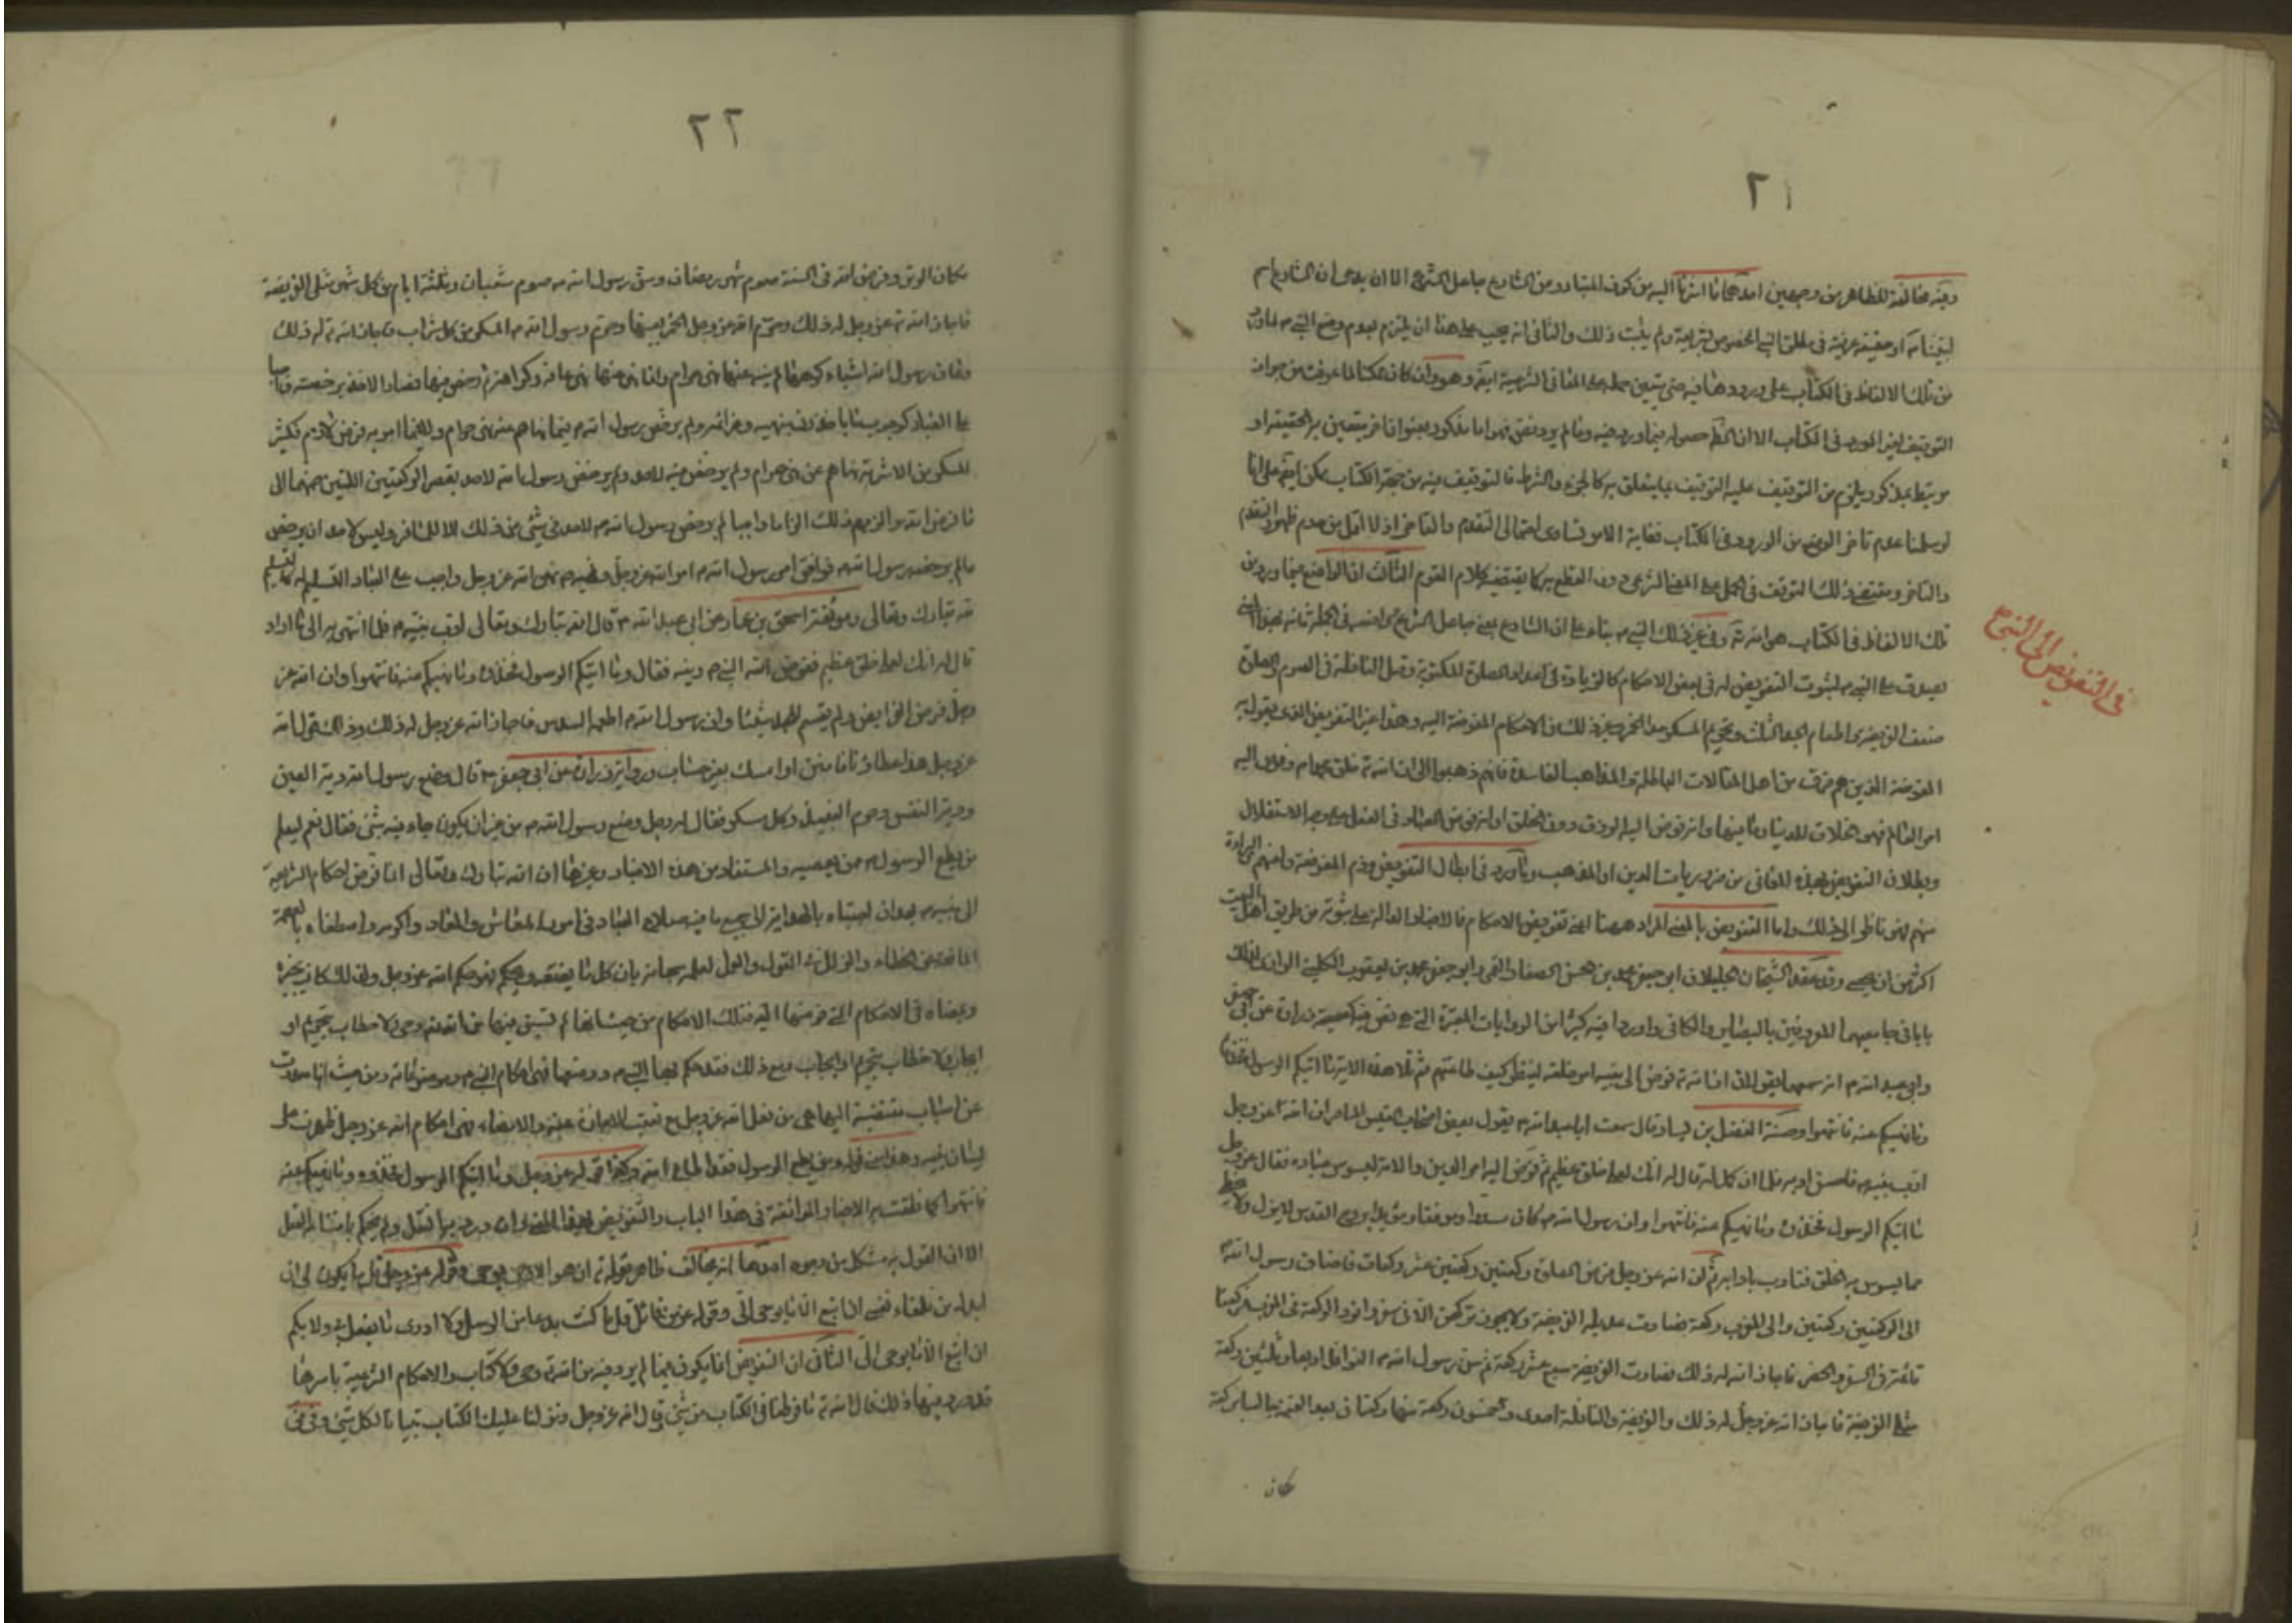 ٢١
وفيه مخالفة للظاهر من وجهين احدهما ما اشرنا اليه من كون المتبادر من الشارع جاعل الشرع الا ان يدعى ان الشارع اسم
لنبينا ص او حقيقة عرفية في النبي المخصوص بشريعة ولم يثبت ذلك والثاني انه يجب على هذا ان يلتزم بعدم وضع النبي ص لما ورد
من تلك الالفاظ في الكتاب على ورودها فيه حتى يتبين حمله على المعاني الشرعية ايضا وهو وان كان ممكنا لما عرفت من جواز
التوقيف لغير المورد في الكتاب الا ان الظ حصوله فيما ورد فيه وما لم يرد فهو اما مذكور بعنوان اخر يتعين به الحقيقة او
مرتبط بمذكور يلزم من التوقيف عليه التوقيف بما يتعلق به كالجزء والشرط فالتوقيف فيه من جهة الكتاب ممكن ايضا على انا
لو سلمنا عدم تاخر الوضع من الورود في الكتاب فغاية الامر تساوى احتمالى التقدم والتاخر اذ لا اقل من عدم ظهور التقدم
والتاخر ومقتضى ذلك التوقف في الحمل على المعنى الشرعي دون القطع به كما يقتضيه كلام القوم الثالث ان الواضع فيما ورد من
تلك الالفاظ في الكتاب هو الله تع وفي غير ذلك النبي ص بناء على ان الشارع يعني جاعل الشرع في الجملة فانه بهذا المعنى
يصدق على النبي ص لثبوت التفويض له في بعض الاحكام كالزيادة في اعداد الصلوة المكتوبة وفعل النافلة في الصوم والصلوة
ضعف الفريضة واطعام الجد السدس وتحريم المسكر عدا الخمر وغير ذلك من الاحكام المفوضة اليه وهذا غير التفويض الذي يقول به
المفوضة الذين هم فرق من اهل المقالات الباطلة والمذاهب الفاسدة فانهم ذهبوا الى ان الله تع خلق محمدا ص وفوض اليه
امر العالم فهو الخلاق للدنيا وما فيها وانه فوض اليه الرزق دون الخلق او انه فوض العباد في الفعل على وجه الاستقلال
وبطلان التفويض بهذه المعاني من ضروريات الدين او المذهب وما ورد في ابطال التفويض وذم المفوضة ولعنهم والبراءة
منهم فهو ناظر الى ذلك واما التفويض بالمعنى المراد ههنا اعني تفويض الاحكام فالاخبار الدالة على ثبوته من طريق اهل البيت
اكثر من ان يحصى وقد عقد الشيخان الجليلان ابو جعفر محمد بن الحسن الصفار القمي وابو جعفر محمد بن يعقوب الكليني الرازي لذلك
بابا في جامعيهما المعروفين بالبصاير والكافي واوردا فيه كثيرا من الروايات المعتبرة التي هي نص فيه كصحيحة زرارة عن ابي جعفر
وابي عبد الله ع انه سمعهما يقولان ان الله تع فوض الى نبيه امر خلقه لينظر كيف طاعتهم ثم تلا هذه الاية ما اتيكم الرسول فخذوه
وما نهيكم عنه فانتهوا وحسنة الفضيل بن يسار قال سمعت ابا عبد الله ع يقول لبعض اصحاب القيس الماصر ان الله عز وجل
ادب نبيه ص فاحسن ادبه فلما ان كمل له قال له انك لعلى خلق عظيم ثم فوض اليه امر الدين والامة ليسوس عباده فقال عز وجل
ما اتيكم الرسول فخذوه وما نهيكم عنه فانتهوا وان رسول الله ص كان مسددا وموفقا ومؤيدا بروح القدس لا يزل ولا يخطى
مما يسوس به الخلق فتادب باداب الله ثم ان الله عز وجل فرض الصلوة ركعتين ركعتين عشر ركعات فاضاف رسول الله ص
الى الركعتين ركعتين والى المغرب ركعة فصارت عديل الفريضة لا يجوز تركهن الا في سفر وافرد الركعة في المغرب فتركها
قائمة في السفر والحضر فاجاز الله له ذلك فصارت الفريضة سبع عشر ركعة ثم سن رسول الله ص النوافل اربعا وثلثين ركعة
مثلى الفريضة فاجاز الله عز وجل له ذلك والفريضة والنافلة احدى وخمسون ركعة منها ركعتان بعد العتمة جالسا بركعة
مكان
في التفويض الى النبي ص
٢٢
مكان الوتر وفرض الله في السنة صوم شهر رمضان وسن رسول الله ص صوم شعبان وثلثة ايام من كل شهر مثلى الفريضة
فاجاز الله تع عز وجل له ذلك وحرم الله عز وجل الخمر بعينها وحرم رسول الله ص المسكر من كل شراب فاجاز الله تع له ذلك
وعاف رسول الله اشياء كرهها لم ينه عنها نهى حرام وانما نهى عنها نهى عافة وكراهة ثم رخص فيها فصار الاخذ برخصته واجبا
على العباد كوجوب ما ياخذون بنهيه وعزائمه ولم يرخص رسول الله ص فيما نهاهم عنه نهى حرام ولا فيما امر به فرض لازم فكثير
المسكر من الاشربة نهاهم عنه نهى حرام ولم يرخص فيه لاحد ولم يرخص رسول الله لاحد تقصير الركعتين اللتين ضمهما الى
ما فرض الله بل الزمهم ذلك الزاما واجبا لم يرخص رسول الله ص لاحد في شئ من ذلك الا للمسافر وليس لاحد ان يرخص
ما لم يرخصه رسول الله ص فوافق امر رسول الله ص امر الله عز وجل ونهيه نهى الله عز وجل ووجب على العباد التسليم له كالتسليم
لله تبارك وتعالى وموثقة اسحق بن عمار عن ابي عبد الله ع قال ان الله تبارك وتعالى ادب نبيه ص فلما انتهى به الى ما اراد
قال له انك لعلى خلق عظيم ففوض الله اليه دينه فقال وما اتيكم الرسول فخذوه وما نهيكم عنه فانتهوا وان الله عز
وجل فرض الفرايض ولم يقسم للجد شيئا وان رسول الله ص اطعمه السدس فاجاز الله عز وجل له ذلك وذلك قول الله
عز وجل هذا عطاؤنا فامنن او امسك بغير حساب ورواية زرارة عن ابي جعفر ع قال وضع رسول الله دية العين
ودية النفس وحرم النبيذ وكل مسكر فقال له رجل وضع رسول الله ص من غير ان يكون جاء فيه شئ فقال نعم ليعلم
من يطع الرسول ص ممن يعصيه والمستفاد من هذه الاخبار وغيرها ان الله تبارك وتعالى انما فوض احكام الشريعة
الى نبيه ص بعد ان اجتباه بالهداية الى جميع ما فيه صلاح العباد في امور المعاش والمعاد واكرمه واصطفاه بالعصمة
المانعة عن الخطاء والزلل في القول والعمل لعلمه سبحانه بان كل ما يعتقده ويحكم به فهو حكم الله عز وجل ولذلك كان يخيره
وعضاه في الاحكام التي فوضها اليه فتلك الاحكام من حيث انها لم يسبق فيها من الله تع وحى ولا خطاب بتحريم او
ايجاب ولا خطاب بتحريم او ايجاب ومع ذلك فقد حكم بها النبي ص ووضعها فهي احكام النبي ص وموضوعاته ومن حيث انها صدرت
عن اسباب مقتضية اليها هي من فعل الله عز وجل مع تعقب الاجازة عليه والامضاء فهي احكام الله عز وجل ظهرت على
لسان نبيه وهذا معنى قوله ومن يطع الرسول فقد اطاع الله وكذا قوله عز وجل وما اتيكم الرسول فخذوه وما نهيكم عنه
فانتهوا كما نطقت به الاخبار الموافقة في هذا الباب والتفويض بهذا المعنى وان ورد به النقل ولم يحكم بامتناعه العقل
الا ان القول به مشكل من وجوه احدها انه يخالف ظاهر قوله تع ان هو الا وحى يوحى وقوله عز وجل قل ما يكون لي ان
ابدله من تلقاء نفسي ان اتبع الا ما يوحى الي وقوله عز من قائل قل ما كنت بدعا من الرسل وما ادرى ما يفعل بي ولا بكم
ان اتبع الا ما يوحى الي الثاني ان التفويض انما يكون فيما لم يرد فيه من الله تع وحى ولا كتاب والاحكام الشرعية باسرها
قد ورد فيها ذلك قال الله تع ما فرطنا في الكتاب من شئ وقال الله عز وجل ونزلنا عليك الكتاب تبيانا لكل شئ وفي